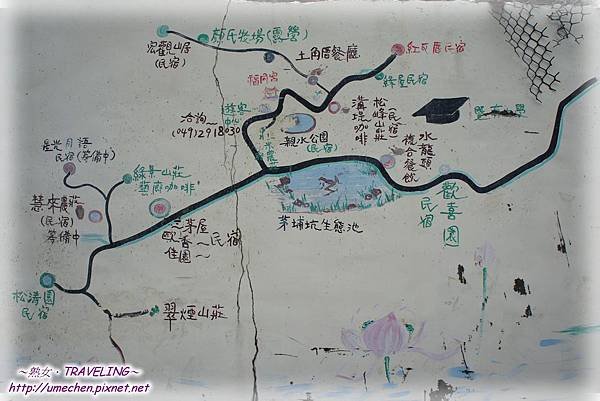 宏觀山居
(民宿)
顏氏牧場(露營)
土角厝餐廳
紅瓦厝民宿
福同宮
綠屋民宿
遊客中心
洽詢~
(049)2918030
親水公園
(民宿)
溝堤咖啡
松峰山莊(民宿)
水龍頭複合餐飲
暨南大學
歡喜園民宿
星光月語
民宿(籌備中)
綠集山莊
藝廊咖啡
慧來農莊
(民宿)
籌備中
三茅屋
歐香~民宿
佳園~
茅埔坑生態池
松濤園
民宿
翠煙山莊
~熟女·TRAVELING~
http://umechen.pixnet.net